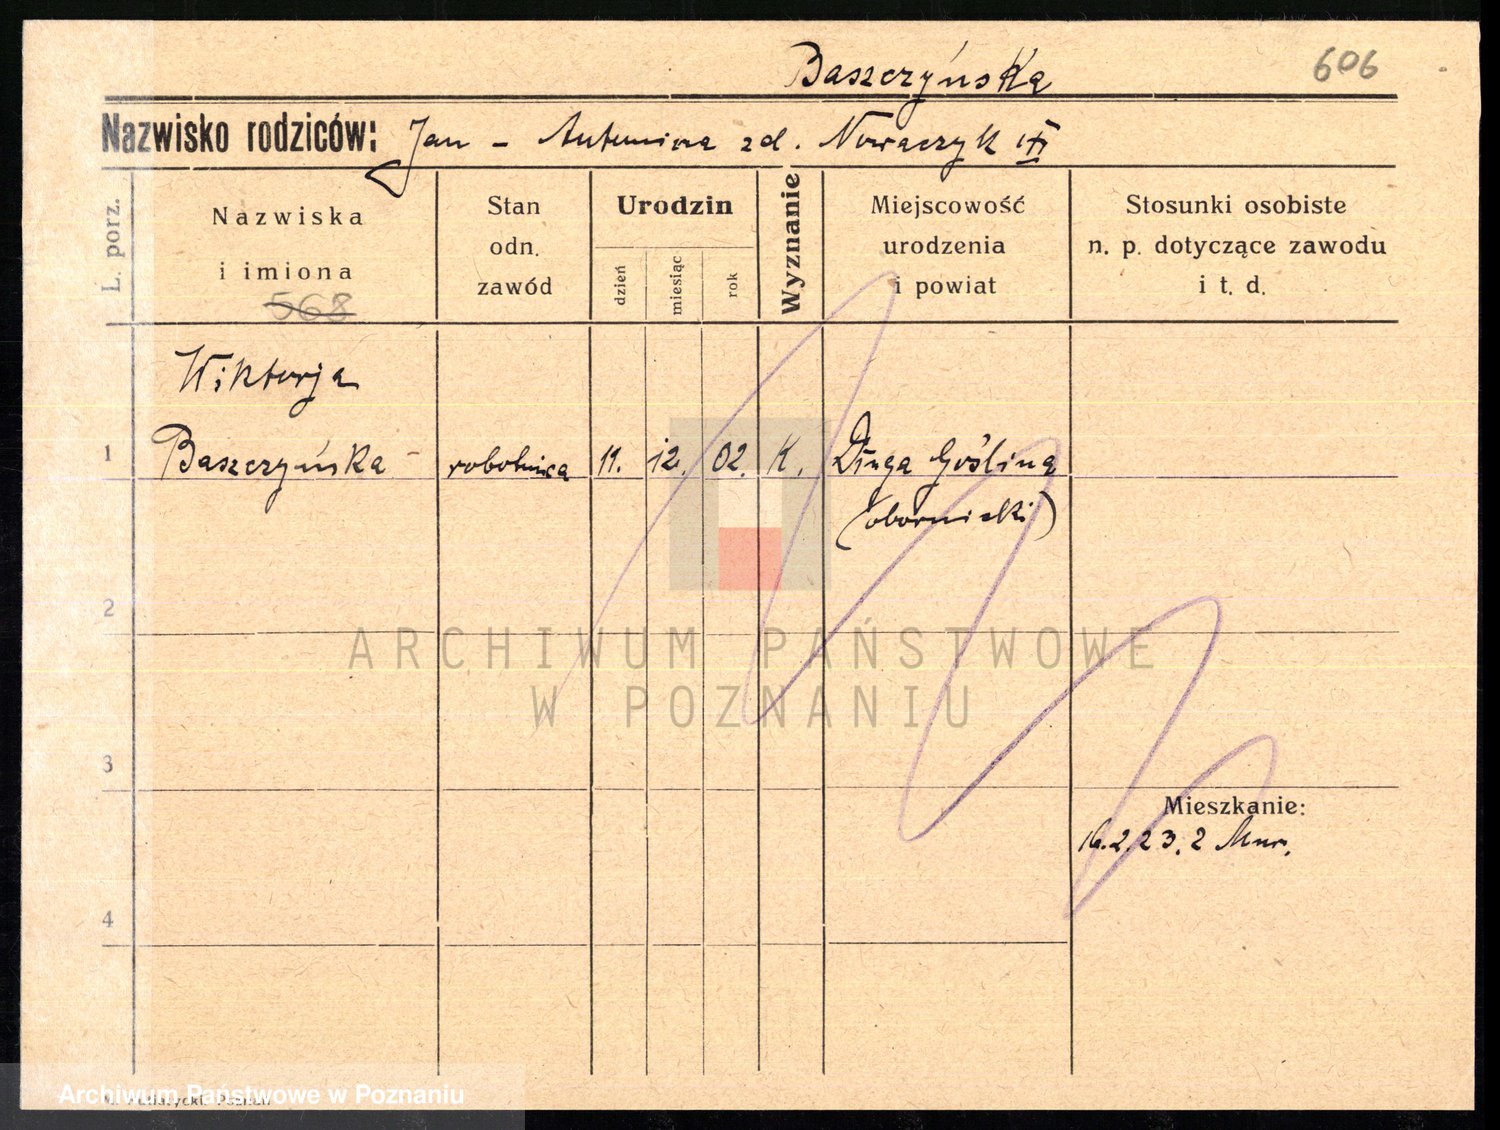 Baszczyńska
606
Nazwisko rodziców: Jan - Antonina zd. Nowaczyk
L. porz.
Nazwiska i imiona
568
Stan odn. zawód
Urodzin
dzień miesiąc rok
Wyznanie
Miejscowość urodzenia i powiat
Stosunki osobiste n. p. dotyczące zawodu i t. d.
Wiktorja
1 Baszczyńska robotnica 11. 12. 02. K. Długa Goślina
(obornicki)
2
ARCHIWUM PAŃSTWOWE
W POZNANIU
3
Mieszkanie:
16.2.23. 2 Mur.
4
Archiwum Państwowe w Poznaniu